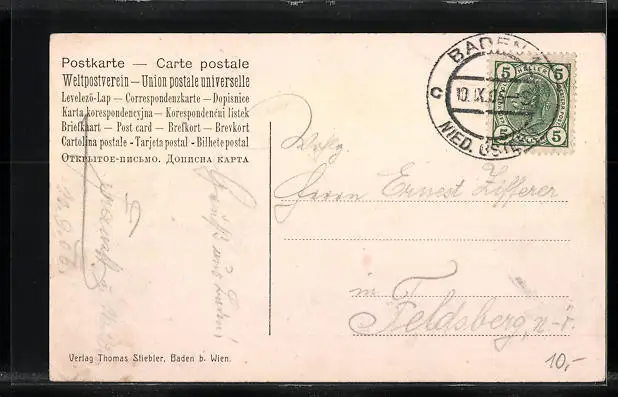 Postkarte — Carte postale
Weltpostverein — Union postale universelle
Levelező-Lap — Correspondenzkarte — Dopisnice
Karta korespondencyjna — Korespondenčni listek
Briefkaart — Post card — Brefkort — Brevkort
Cartolina postale - Tarjeta postal - Bilhete postal
Открытое-письмо. Дописна карта
BADEN 1
10.IX.
NIED. ÖSTER
5 HELLER 5
5 5
Herrn Ernest Zifferer
in
Feldsberg, n-ö.
Gruß aus Baden!
10.9.06.
10,-
Verlag Thomas Stiebler, Baden b. Wien.